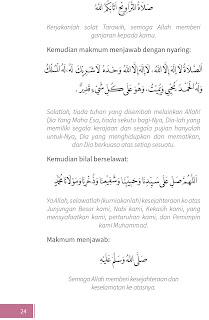 صَلَاةُ التَّرَاوِيْحِ أَثَابَكُمُ اللهُ
Kerjakanlah solat Tarawih, semoga Allah memberi
ganjaran kepada kamu.
Kemudian makmum menjawab dengan nyaring:
الصَّلَاةُ لَا إِلَهَ إِلَّا اللهُ، لَا إِلَهَ إِلَّا اللهُ وَحْدَهُ لَا شَرِيْكَ لَهُ، لَهُ الْمُلْكُ
وَلَهُ الْحَمْدُ يُحْيِي وَيُمِيْتُ، وَهُوَ عَلَى كُلِّ شَيْءٍ قَدِيْرٌ.
Solatlah, tiada tuhan yang disembah melainkan Allah!
Dia Yang Maha Esa, tiada sekutu bagi-Nya, Dia-lah yang
memiliki segala kerajaan dan segala pujian hanyalah
untuk-Nya, Dia yang menghidupkan dan mematikan,
dan Dia berkuasa atas setiap sesuatu.
Kemudian bilal berselawat:
اَللّٰهُمَّ صَلِّ عَلَى سَيِّدِنَا وَحَبِيْبِنَا وَشَفِيْعِنَا وَذُخْرِنَا وَمَوْلَانَا مُحَمَّدٍ
Ya Allah, selawatlah (kurniakanlah) kesejahteraan ke atas
Junjungan Besar kami, Nabi kami, Kekasih kami, yang
mensyafaatkan kami, pertaruhan kami, dan Pemimpin
kami Muhammad.
Makmum menjawab:
صَلَّى اللهُ وَسَلَّمَ عَلَيْهِ
Semoga Allah memberi kesejahteraan dan
keselamatan ke atasnya.
24